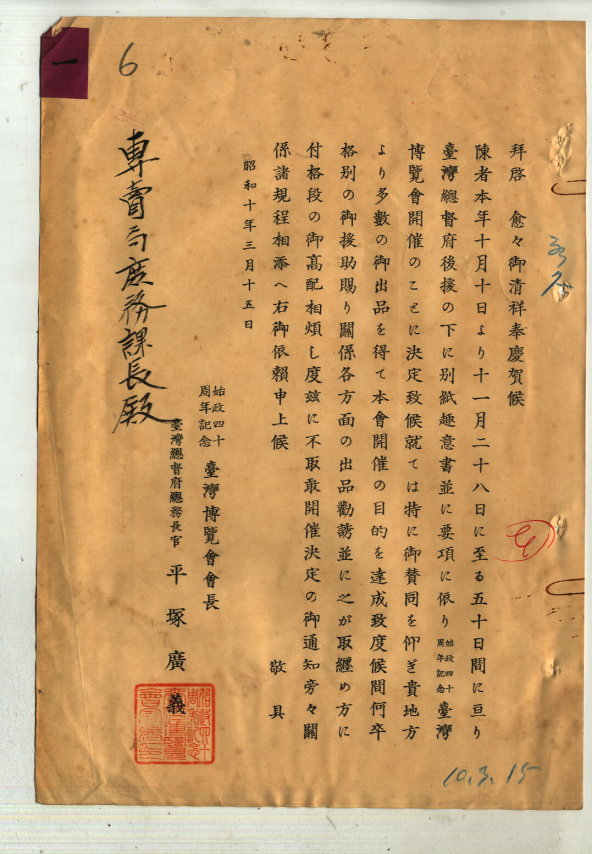 拜啓　愈々御清祥奉慶賀候
陳者本年十月十日より十一月二十八日に至る五十日間に亘り
臺灣總督府後援の下に別紙趣意書並に要項に依り始政四十周年記念臺灣
博覽會開催のことに決定致候就ては特に御賛同を仰ぎ貴地方
より多數の御出品を得て本會開催の目的を達成致度候間何卒
格別の御援助賜り關係各方面の出品勸誘並に之が取纒め方に
付格段の御高配相煩し度玆に不取敢開催決定の御通知旁々關
係諸規程相添へ右御依賴申上候
敬具
昭和十年三月十五日
始政四十周年記念　臺灣博覽會會長
臺灣總督府總務長官　平塚廣義
專賣局庶務課長殿
一
6
10.3.15